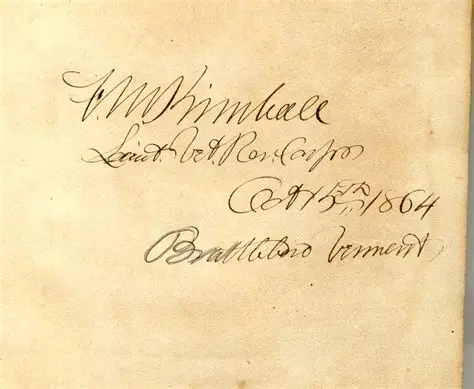 Kimball
Lieut. Vet. Res. Corps
Oct 15th 1864
Brattleboro Vermont